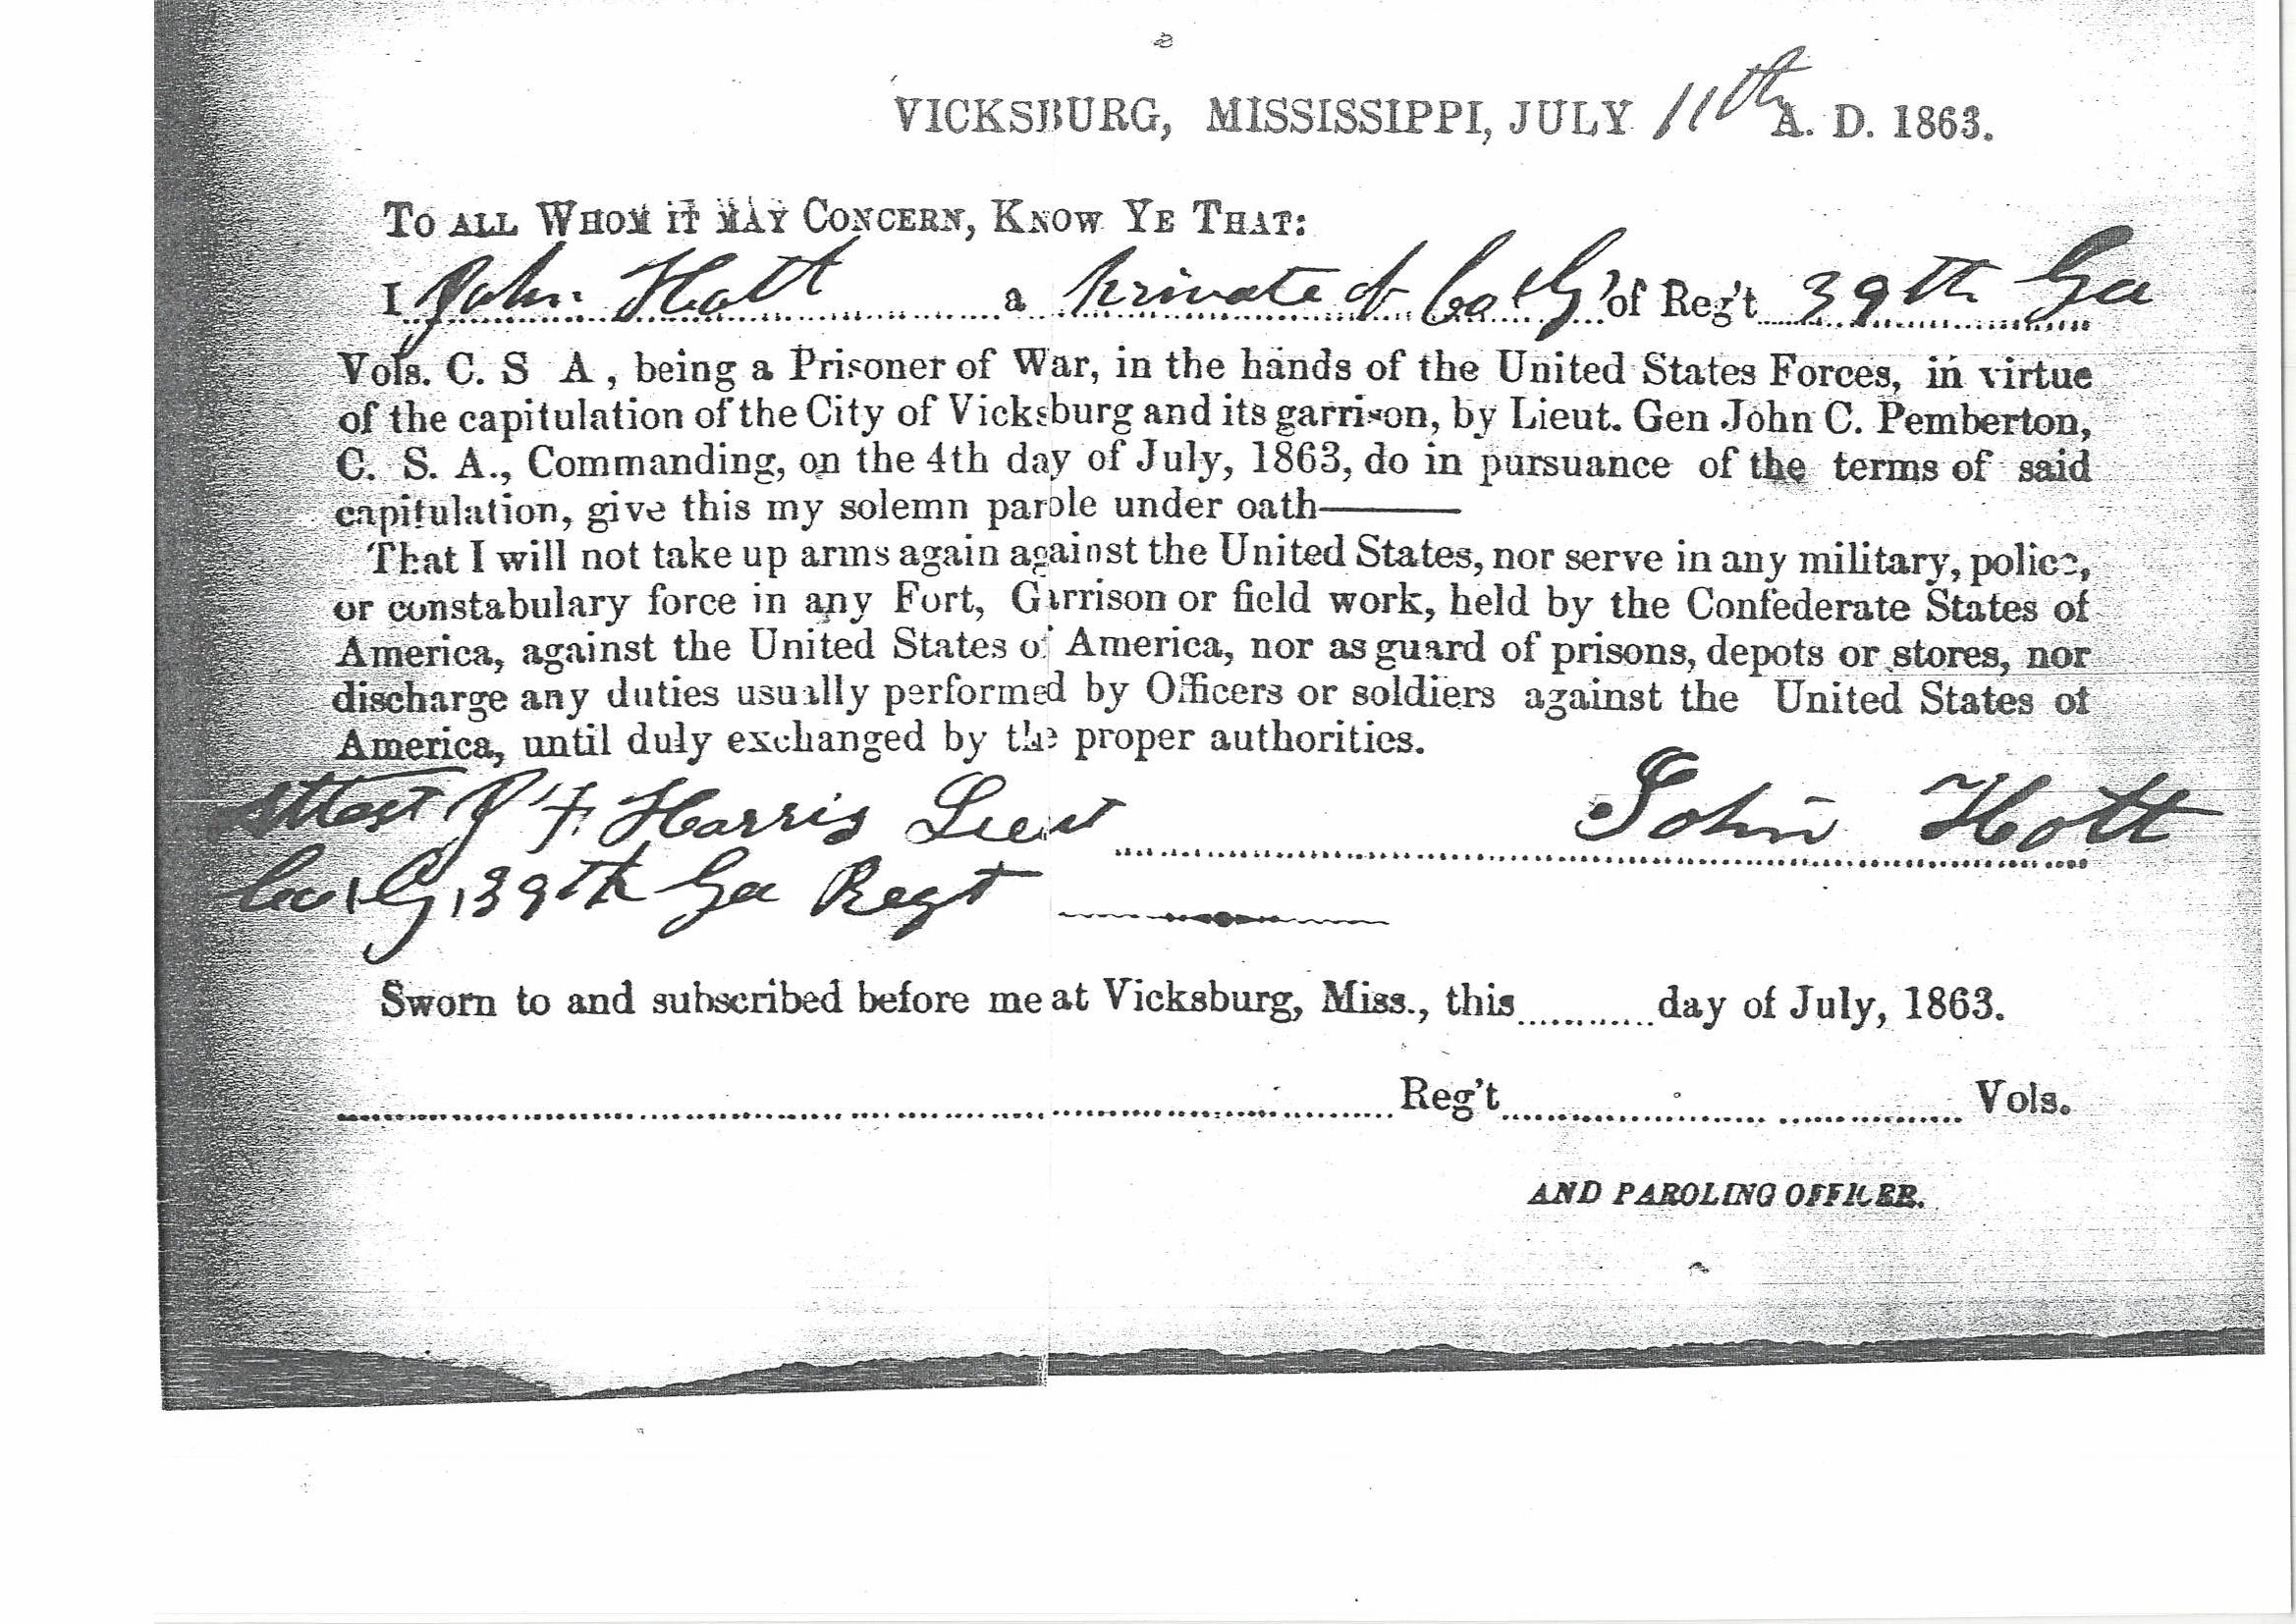 VICKSBURG, MISSISSIPPI, JULY 11th A. D. 1863.
TO ALL WHOM IT MAY CONCERN, KNOW YE THAT:
I John Hott a private of Co "G" of Reg't 39th Ga
Vols. C. S A, being a Prisoner of War, in the hands of the United States Forces, in virtue
of the capitulation of the City of Vicksburg and its garrison, by Lieut. Gen John C. Pemberton,
C. S. A., Commanding, on the 4th day of July, 1863, do in pursuance of the terms of said
capitulation, give this my solemn parole under oath———
That I will not take up arms again against the United States, nor serve in any military, police,
or constabulary force in any Fort, Garrison or field work, held by the Confederate States of
America, against the United States of America, nor as guard of prisons, depots or stores, nor
discharge any duties usually performed by Officers or soldiers against the United States of
America, until duly exchanged by the proper authorities.
Attest J F Harris Lieut John Hott
Co G 39th Ga Regt
Sworn to and subscribed before me at Vicksburg, Miss., this ............ day of July, 1863.
Reg't Vols.
AND PAROLING OFFICER.